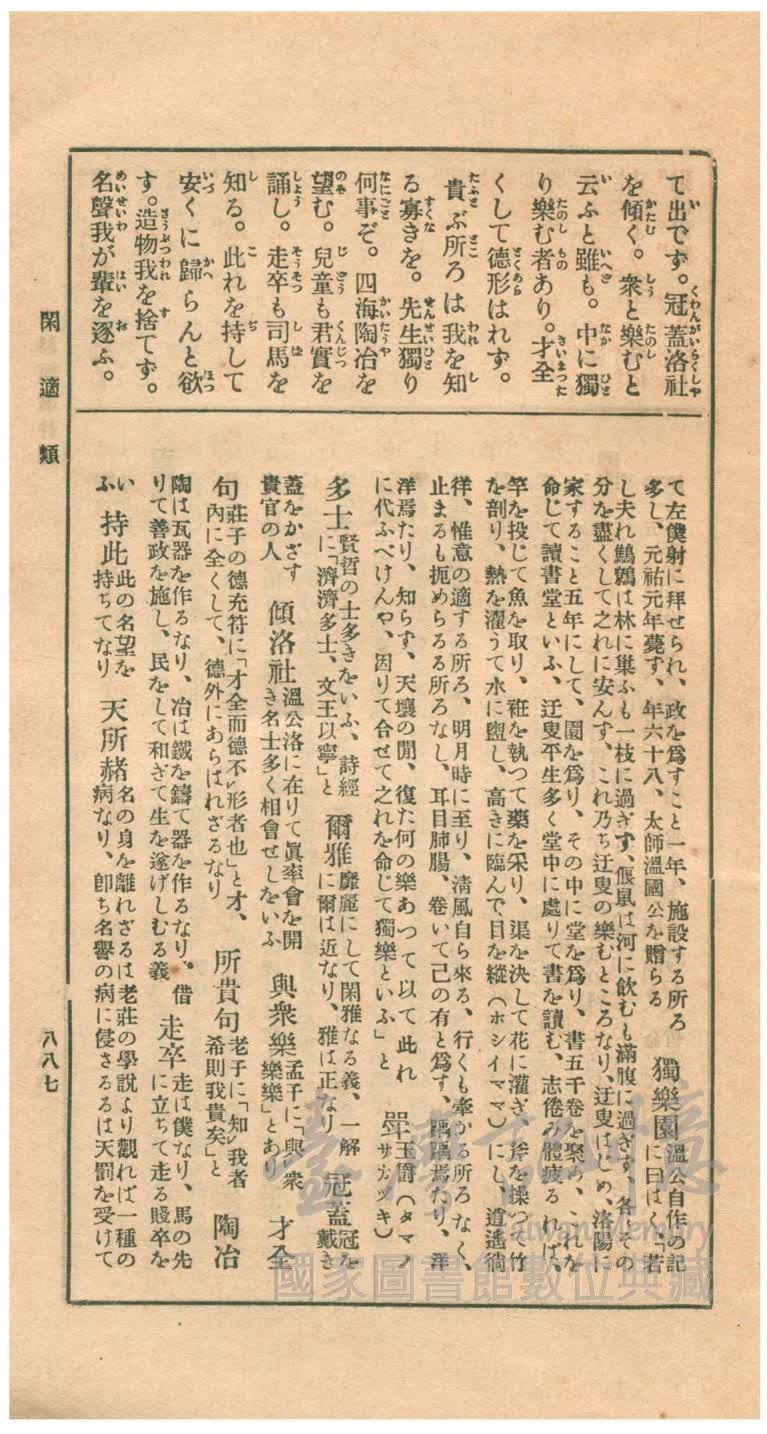 て出でず。冠蓋洛社
を傾く。衆と樂むと
云ふと雖も。中に獨
り樂む者あり。才全
くして德形はれず。
貴ぶ所ろは我を知
る寡きを。先生獨り
何事ぞ。四海陶冶を
望む。兒童も君實を
誦し。走卒も司馬を
知る。此れを持して
安くに歸らんと欲
す。造物我を捨てず。
名聲我が輩を逐ふ。
て左僕射に拜せられ、政を爲すこと一年、施設する所ろ
多し、元祐元年薨ず、年六十八、太師溫國公を贈らる
獨樂園
溫公自作の記
に曰はく、「若
し夫れ鷦鷯は林に巢ふも一枝に過ぎず、偃鼠は河に飲むも滿腹に過ぎず、各その
分を盡くして之れに安んず、これ乃ち迂叟の樂むところなり、迂叟はじめ、洛陽に
家すること五年にして、園を爲り、その中に堂を爲り、書五千卷を聚め、これを
命じて讀書堂といふ、迂叟平生多く堂中に處りて書を讀む、志倦み體疲るれば、
竿を投じて魚を取り、衽を執つて藥を采り、渠を決して花に灌ぎ、斧を操つて竹
を剖り、熱を濯うて水に盥し、高きに臨んで、目を縱(ホシイママ)にし、逍遙徜
徉、惟意の適する所ろ、明月時に至り、清風自ら來る、行くも牽かる所ろなく、
止まるも扼めらるる所ろなし、耳目肺腸、卷いて己の有と爲す、踽踽焉たり、洋
洋焉たり、知らず、天壤の閒、復た何の樂あつて以て此れ
に代ふべけんや、因りて合せて之れを命じて獨樂といふ」と
斝
玉爵(タマノ
サカヅキ)
多士
賢哲の士多きをいふ、詩經
に「濟濟多士、文王以寧」と
爾雅
靡麗にして閑雅なる義、一解
に爾は近なり、雅は正なり
冠蓋
冠を
戴き
蓋をかざす
貴官の人
傾洛社
溫公洛に在りて眞率會を開
き名士多く相會せしをいふ
與衆樂
孟子に「與衆
樂樂」とあり
才全
句
莊子の德充符に「才全而德不形者也」と才、
內に全くして、德外にあらはれざるなり
所貴句
老子に「知我者
希則我貴矣」と
陶冶
陶は瓦器を作るなり、冶は鐵を鑄て器を作るなり、借
りて善政を施し、民をして和ぎて生を遂げしむる義
走卒
走は僕なり、馬の先
に立ちて走る賤卒を
い
ふ
持此
此の名望を
持ちてなり
天所赭
名の身を離れざるは老莊の學說より觀れば一種の
病なり、卽ち名譽の病に侵さるるは天罰を受けて
閑適類
八八七
國家圖書館數位典藏
Taiwan Memory